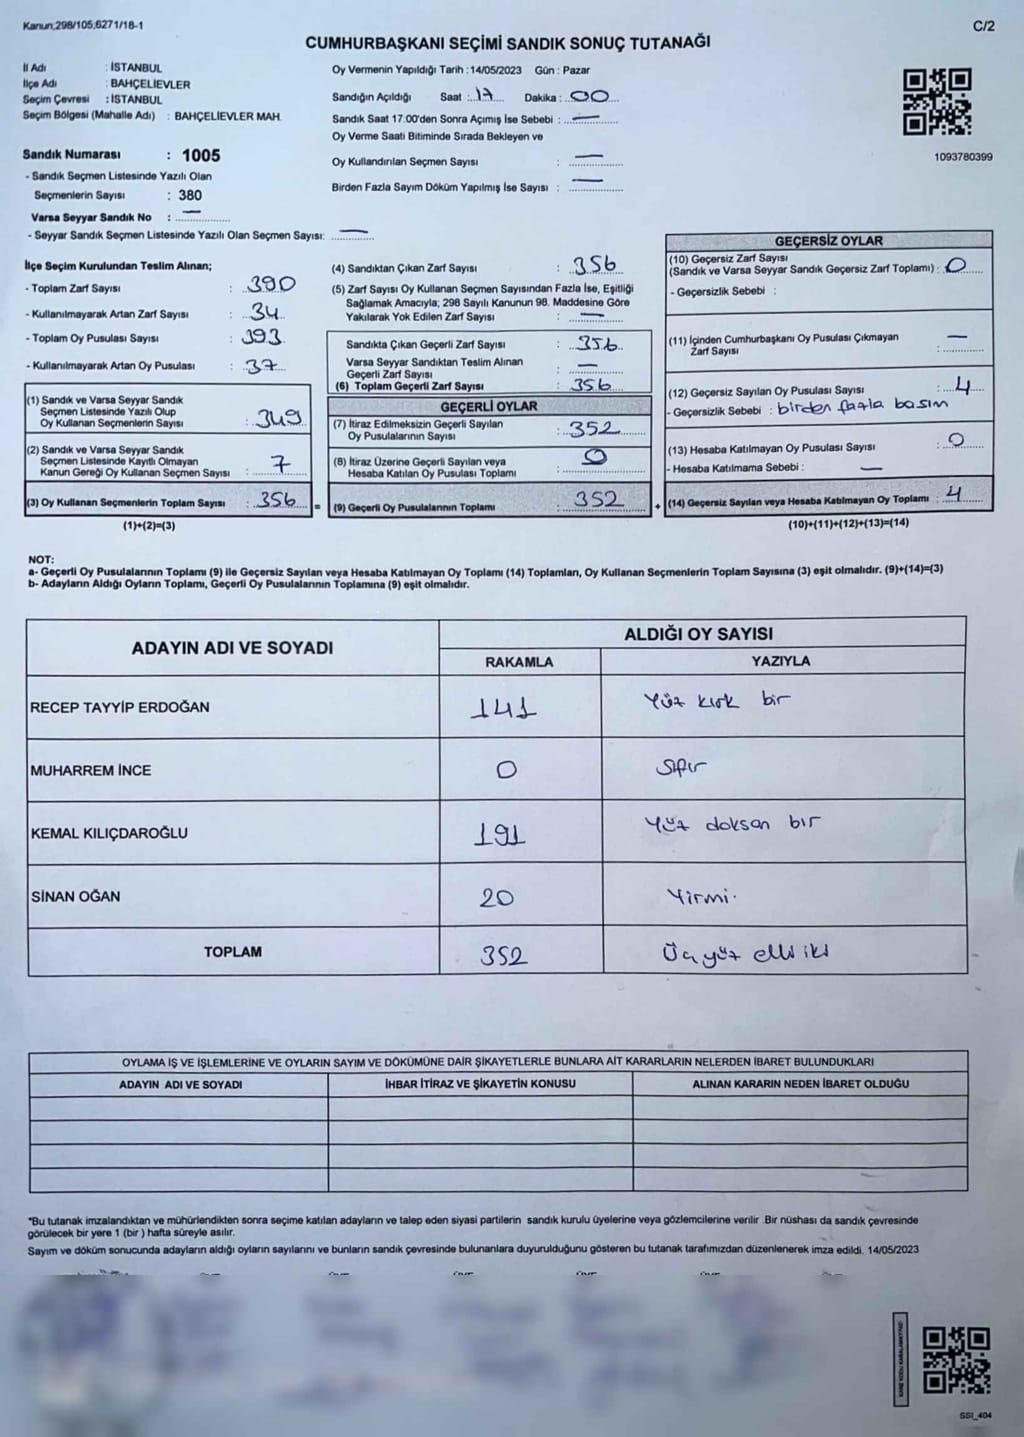 Kanun;298/105,6271/18-1
C/2
CUMHURBAŞKANI SEÇİMİ SANDIK SONUÇ TUTANAĞI
İl Adı : İSTANBUL
İlçe Adı : BAHÇELİEVLER
Seçim Çevresi : İSTANBUL
Seçim Bölgesi (Mahalle Adı) : BAHÇELİEVLER MAH.
Sandık Numarası : 1005
- Sandık Seçmen Listesinde Yazılı Olan
Seçmenlerin Sayısı : 380
Varsa Seyyar Sandık No : —
- Seyyar Sandık Seçmen Listesinde Yazılı Olan Seçmen Sayısı: —
Oy Vermenin Yapıldığı Tarih : 14/05/2023 Gün : Pazar
Sandığın Açıldığı Saat : 17 Dakika : 00
Sandık Saat 17:00'den Sonra Açımış İse Sebebi : —
Oy Verme Saati Bitiminde Sırada Bekleyen ve
Oy Kullandırılan Seçmen Sayısı : —
Birden Fazla Sayım Döküm Yapılmış İse Sayısı : —
1093780399
İlçe Seçim Kurulundan Teslim Alınan;
- Toplam Zarf Sayısı : 390
- Kullanılmayarak Artan Zarf Sayısı : 34
- Toplam Oy Pusulası Sayısı : 393
- Kullanılmayarak Artan Oy Pusulası : 37
(1) Sandık ve Varsa Seyyar Sandık
Seçmen Listesinde Yazılı Olup
Oy Kullanan Seçmenlerin Sayısı : 349
(2) Sandık ve Varsa Seyyar Sandık
Seçmen Listesinde Kayıtlı Olmayan
Kanun Gereği Oy Kullanan Seçmen Sayısı : 7
(3) Oy Kullanan Seçmenlerin Toplam Sayısı : 356 =
(1)+(2)=(3)
(4) Sandıktan Çıkan Zarf Sayısı : 356
(5) Zarf Sayısı Oy Kullanan Seçmen Sayısından Fazla İse, Eşitliği
Sağlamak Amacıyla; 298 Sayılı Kanunun 98. Maddesine Göre
Yakılarak Yok Edilen Zarf Sayısı : —
Sandıkta Çıkan Geçerli Zarf Sayısı : 356
Varsa Seyyar Sandıktan Teslim Alınan
Geçerli Zarf Sayısı : —
(6) Toplam Geçerli Zarf Sayısı : 356
GEÇERLİ OYLAR
(7) İtiraz Edilmeksizin Geçerli Sayılan
Oy Pusulalarının Sayısı : 352
(8) İtiraz Üzerine Geçerli Sayılan veya
Hesaba Katılan Oy Pusulası Toplamı : 0
(9) Geçerli Oy Pusulalarının Toplamı : 352 +
GEÇERSİZ OYLAR
(10) Geçersiz Zarf Sayısı
(Sandık ve Varsa Seyyar Sandık Geçersiz Zarf Toplamı) : 0
- Geçersizlik Sebebi :
(11) İçinden Cumhurbaşkanı Oy Pusulası Çıkmayan
Zarf Sayısı : —
(12) Geçersiz Sayılan Oy Pusulası Sayısı : 4
- Geçersizlik Sebebi : birden fazla basım
(13) Hesaba Katılmayan Oy Pusulası Sayısı : 0
- Hesaba Katılmama Sebebi : —
(14) Geçersiz Sayılan veya Hesaba Katılmayan Oy Toplamı : 4
(10)+(11)+(12)+(13)=(14)
NOT:
a- Geçerli Oy Pusulalarının Toplamı (9) ile Geçersiz Sayılan veya Hesaba Katılmayan Oy Toplamı (14) Toplamları, Oy Kullanan Seçmenlerin Toplam Sayısına (3) eşit olmalıdır. (9)+(14)=(3)
b- Adayların Aldığı Oyların Toplamı, Geçerli Oy Pusulalarının Toplamına (9) eşit olmalıdır.
ADAYIN ADI VE SOYADI
ALDIĞI OY SAYISI
RAKAMLA YAZIYLA
RECEP TAYYİP ERDOĞAN 141 Yüz kırk bir
MUHARREM İNCE 0 Sıfır
KEMAL KILIÇDAROĞLU 191 Yüz doksan bir
SİNAN OĞAN 20 Yirmi.
TOPLAM 352 Üçyüz elli iki
OYLAMA İŞ VE İŞLEMLERİNE VE OYLARIN SAYIM VE DÖKÜMÜNE DAİR ŞİKAYETLERLE BUNLARA AİT KARARLARIN NELERDEN İBARET BULUNDUKLARI
ADAYIN ADI VE SOYADI İHBAR İTİRAZ VE ŞİKAYETİN KONUSU ALINAN KARARIN NEDEN İBARET OLDUĞU
*Bu tutanak imzalandıktan ve mühürlendikten sonra seçime katılan adayların ve talep eden siyasi partilerin sandık kurulu üyelerine veya gözlemcilerine verilir .Bir nüshası da sandık çevresinde
görülecek bir yere 1 (bir ) hafta süreyle asılır.
Sayım ve döküm sonucunda adayların aldığı oyların sayılarını ve bunların sandık çevresinde bulunanlara duyurulduğunu gösteren bu tutanak tarafımızdan düzenlenerek imza edildi. 14/05/2023
SSI_404